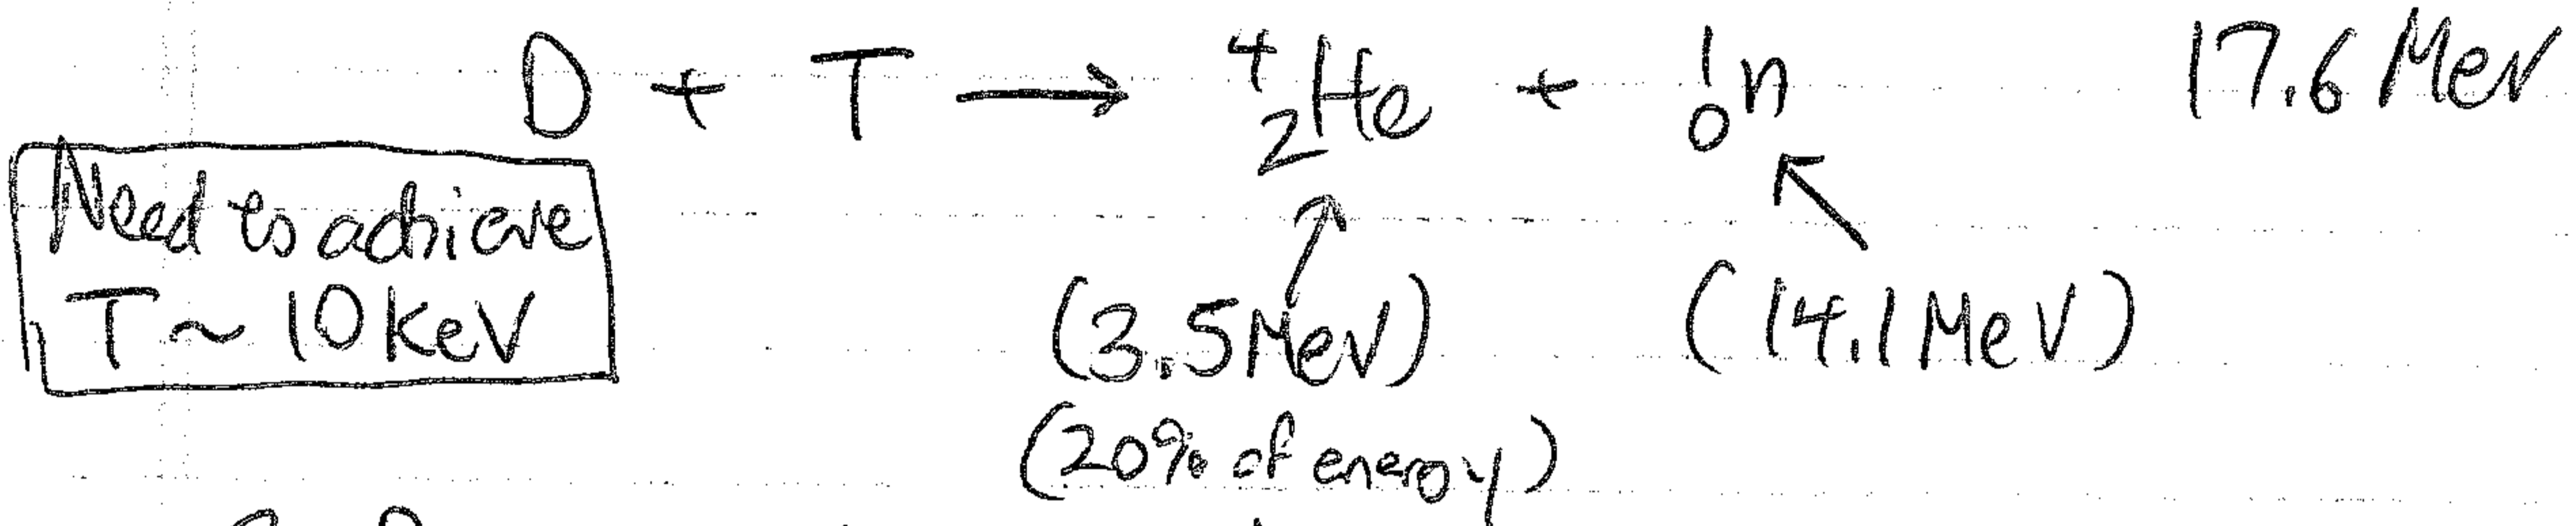 D + T ⟶ ⁴₂He + ¹₀n 17.6 MeV
Need to achieve
T ~ 10 keV
(3.5 MeV) (14.1 MeV)
(20% of energy)